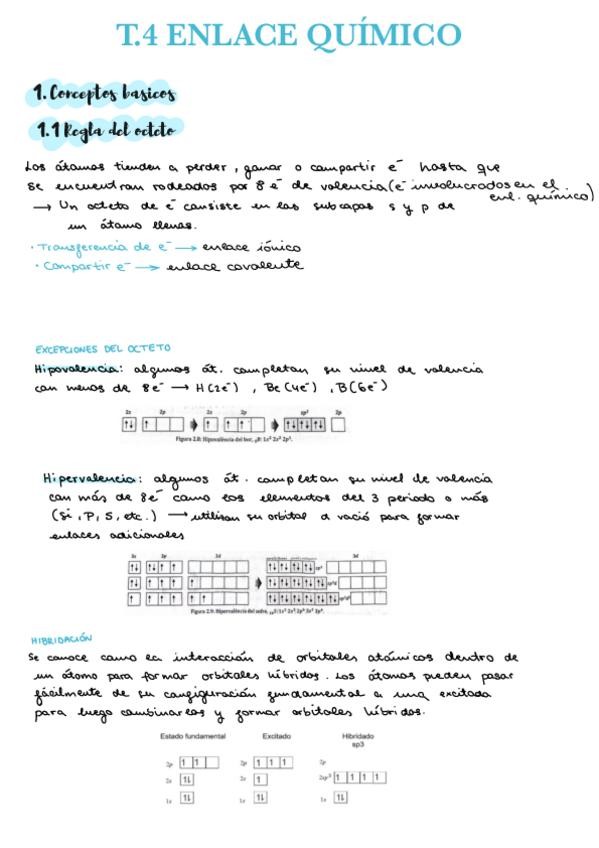 T.4 ENLACE QUÍMICO
1. Conceptos basicos
1.1 Regla del octeto
Los átomos tienden a perder, ganar o compartir e⁻ hasta que
se encuentran rodeados por 8 e⁻ de valencia (e⁻ involucrados en el
enl. químico)
→ Un octeto de e⁻ consiste en las subcapas s y p de
un átomo llenas.
· Transferencia de e⁻ → enlace iónico
· Compartir e⁻ → enlace covalente
EXCEPCIONES DEL OCTETO
Hipovalencia: algunos át. completan su nivel de valencia
con menos de 8e⁻ → H(2e⁻), Be(4e⁻), B(6e⁻)
2s 2p 2s 2p sp² 2p
Figura 2.8: Hipovalència del bor, ₅B: 1s² 2s² 2p¹.
Hipervalencia: algunos át. completan su nivel de valencia
con más de 8e⁻ como los elementos del 3 periodo o más
(Si, P, S, etc.) → utilizan su orbital d vació para formar
enlaces adicionales
3s 3p 3d 3d
sp³
sp³d
sp³d²
Figura 2.9: Hipervalència del sofre, ₁₆S: 1s² 2s² 2p⁶ 3s² 3p⁴.
HIBRIDACIÓN
Se conoce como la interacción de orbitales atómicos dentro de
un átomo para formar orbitales híbridos. Los átomos pueden pasar
fácilmente de su configuración fundamental a una excitada
para luego combinarlos y formar orbitales híbridos.
Estado fundamental Excitado Hibridado
sp3
2p 1 1 2p 1 1 1 2p
2s 1⇂ 2s 1 2sp³ 1 1 1 1
1s 1⇂ 1s 1⇂ 1s 1⇂